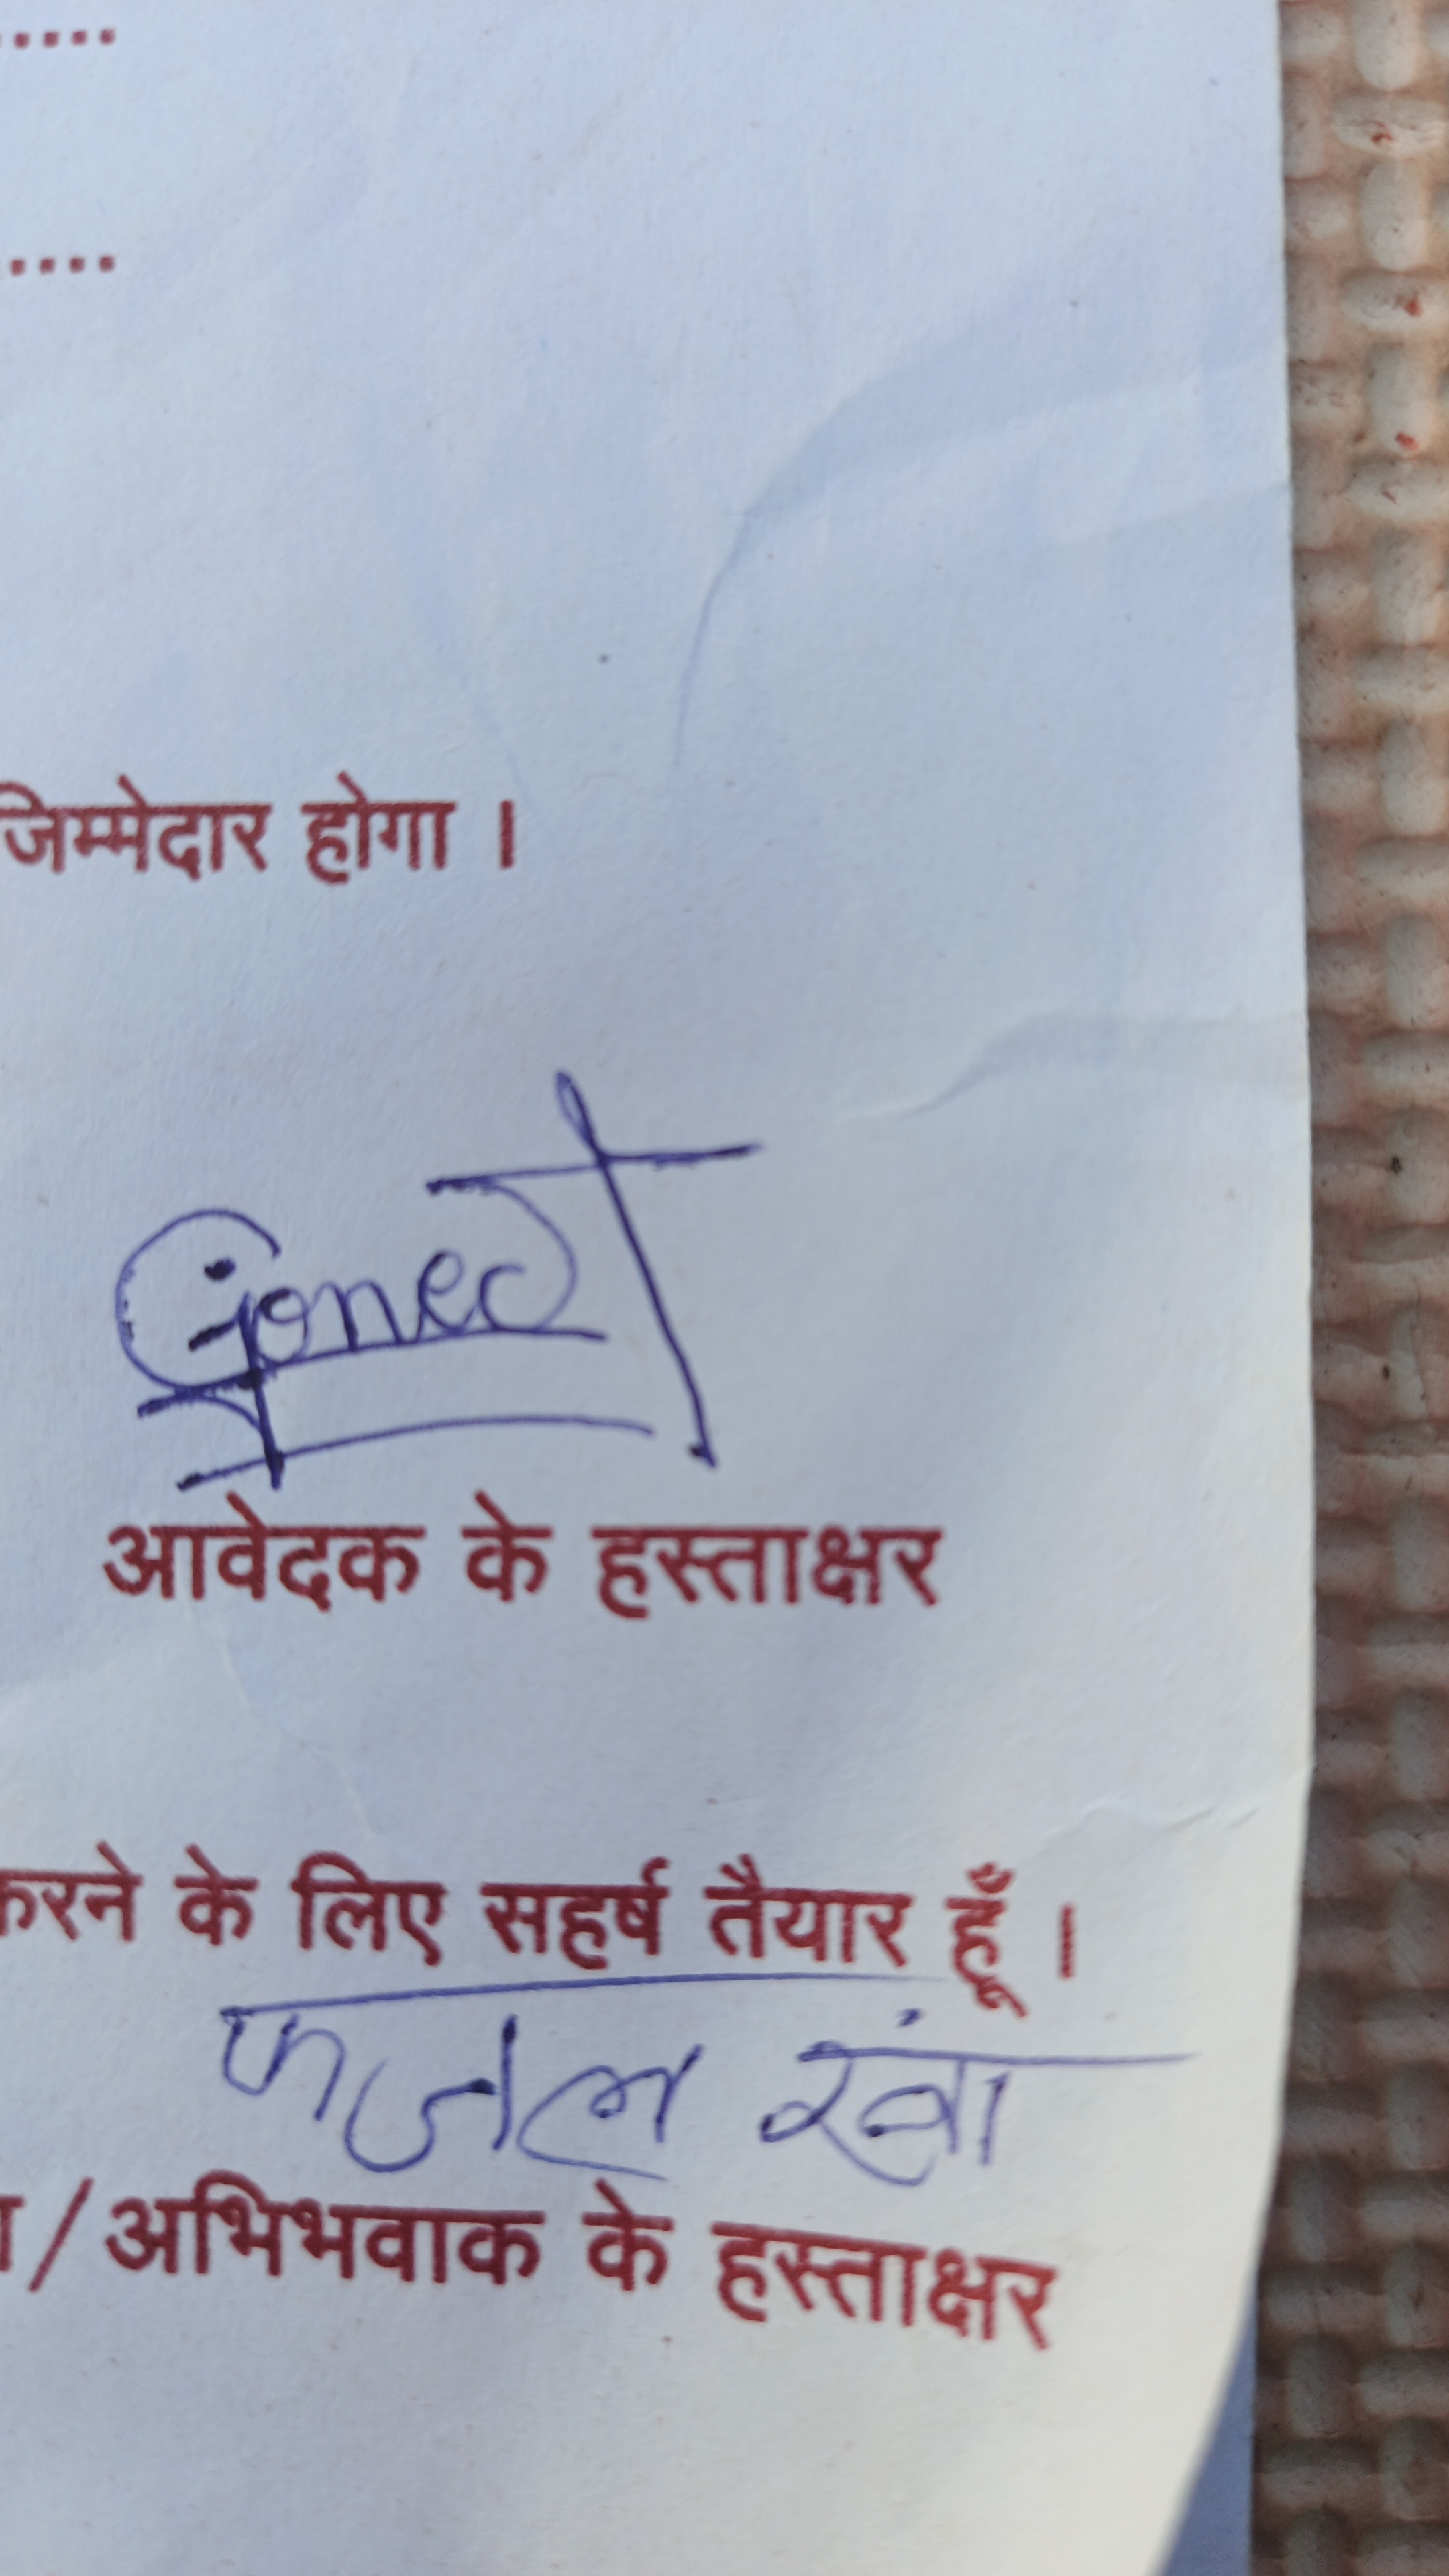 .....
....
जिम्मेदार होगा ।
आवेदक के हस्ताक्षर
करने के लिए सहर्ष तैयार हूँ ।
फजल खां
/अभिभवाक के हस्ताक्षर